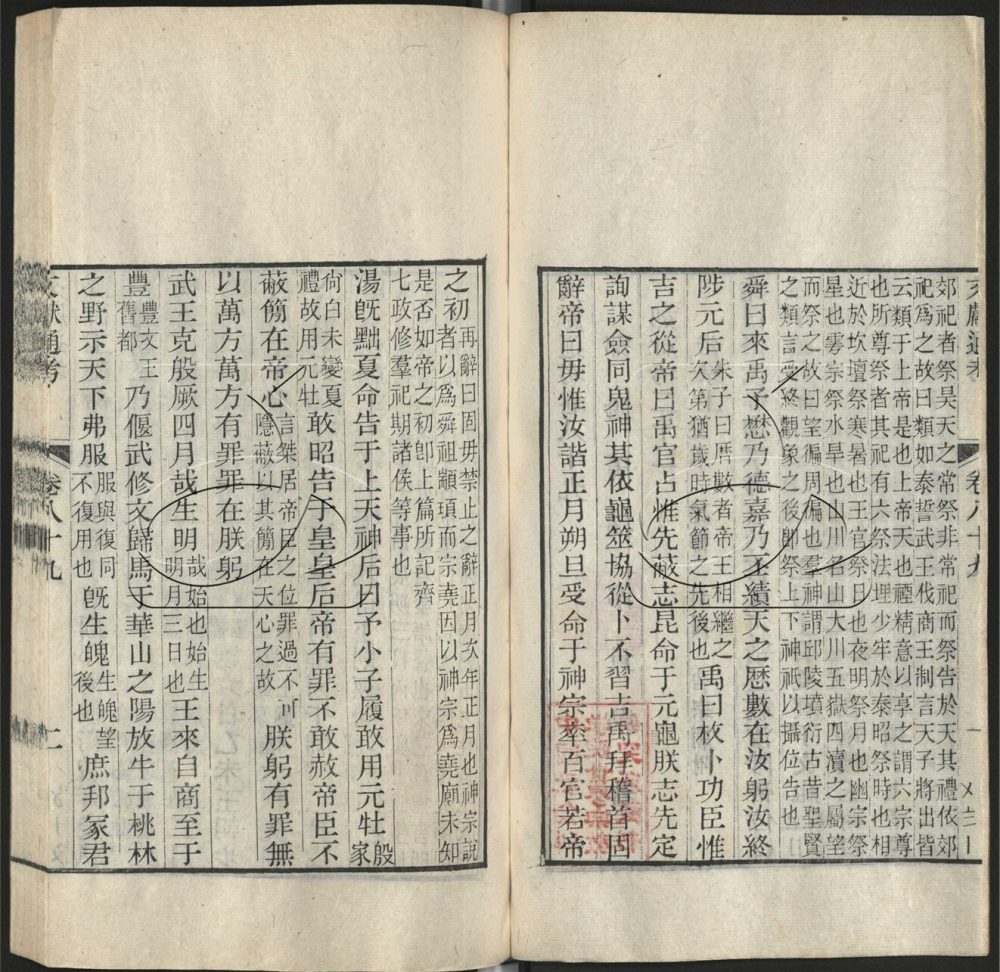 文獻通考 卷八十九 一
郊祀者祭昊天之常祭非常祀而祭告於天其禮依郊
祀爲之故曰類如泰誓武王伐商王制言天子將出皆
云類于上帝是也上帝天也禋精意以享之謂六宗尊
也所尊祭者其祀有六祭法埋少牢於泰昭祭時也相
近於坎壇祭寒暑也王官祭日也夜明祭月也幽宗祭
星也雩宗祭水旱也山川名山大川五嶽四瀆之屬望
而祭之故曰望徧周徧也羣神謂邱陵墳衍古昔聖賢
之類言受終觀象之後卽祭上下神祇以攝位告也
舜曰來禹予懋乃德嘉乃丕績天之厯數在汝躬汝終
陟元后朱子曰厯數者帝王相繼之次第猶歲時氣節之先後也禹曰枚卜功臣惟
吉之從帝曰禹官占惟先蔽志昆命于元龜朕志先定
詢謀僉同鬼神其依龜筮協從卜不習吉禹拜稽首固
辭帝曰毋惟汝諧正月朔旦受命于神宗率百官若帝
之初再辭曰固毋禁止之辭正月次年正月也神宗說者以爲舜祖顓頊而宗堯因以神宗爲堯廟未知
是否如帝之初卽上篇所記齊七政修羣祀期諸侯等事也
湯旣黜夏命告于上天神后曰予小子履敢用元牡殷家
尙白未變夏禮故用元牡敢昭告于皇皇后帝有罪不敢赦帝臣不
蔽簡在帝心言桀居帝臣之位罪過不可隱蔽以其簡在天心之故朕躬有罪無
以萬方萬方有罪罪在朕躬
武王克殷厥四月哉生明哉始也始生明月三日也王來自商至于
豐豐文王舊都乃偃武修文歸馬于華山之陽放牛于桃林
之野示天下弗服服與復同不復用也旣生魄生魄望後也庶邦冢君
文獻通考 卷八十九 二